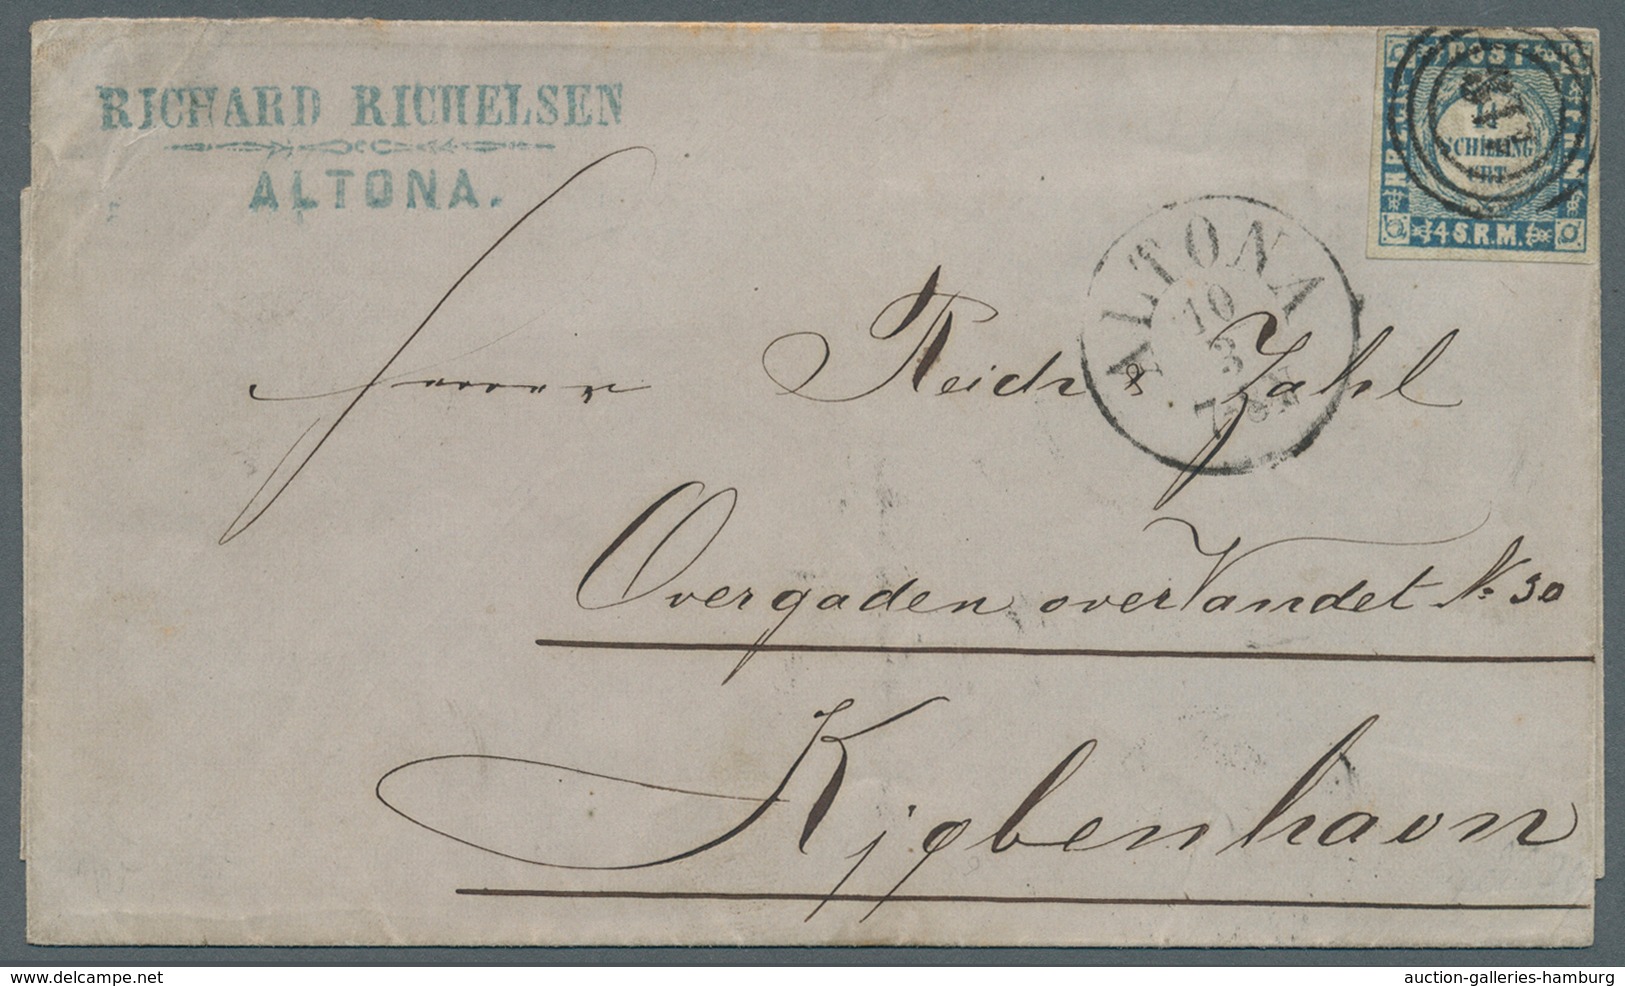 RICHARD RICHELSEN
ALTONA.
POST
SCHILLING
CRT.
4 S.R.M.
ALTONA
10
3
Herren Reich & Zahl
Overgaden over Vandet No 30
Kjøbenhavn
www.delcampe.net
auction-galleries-hamburg